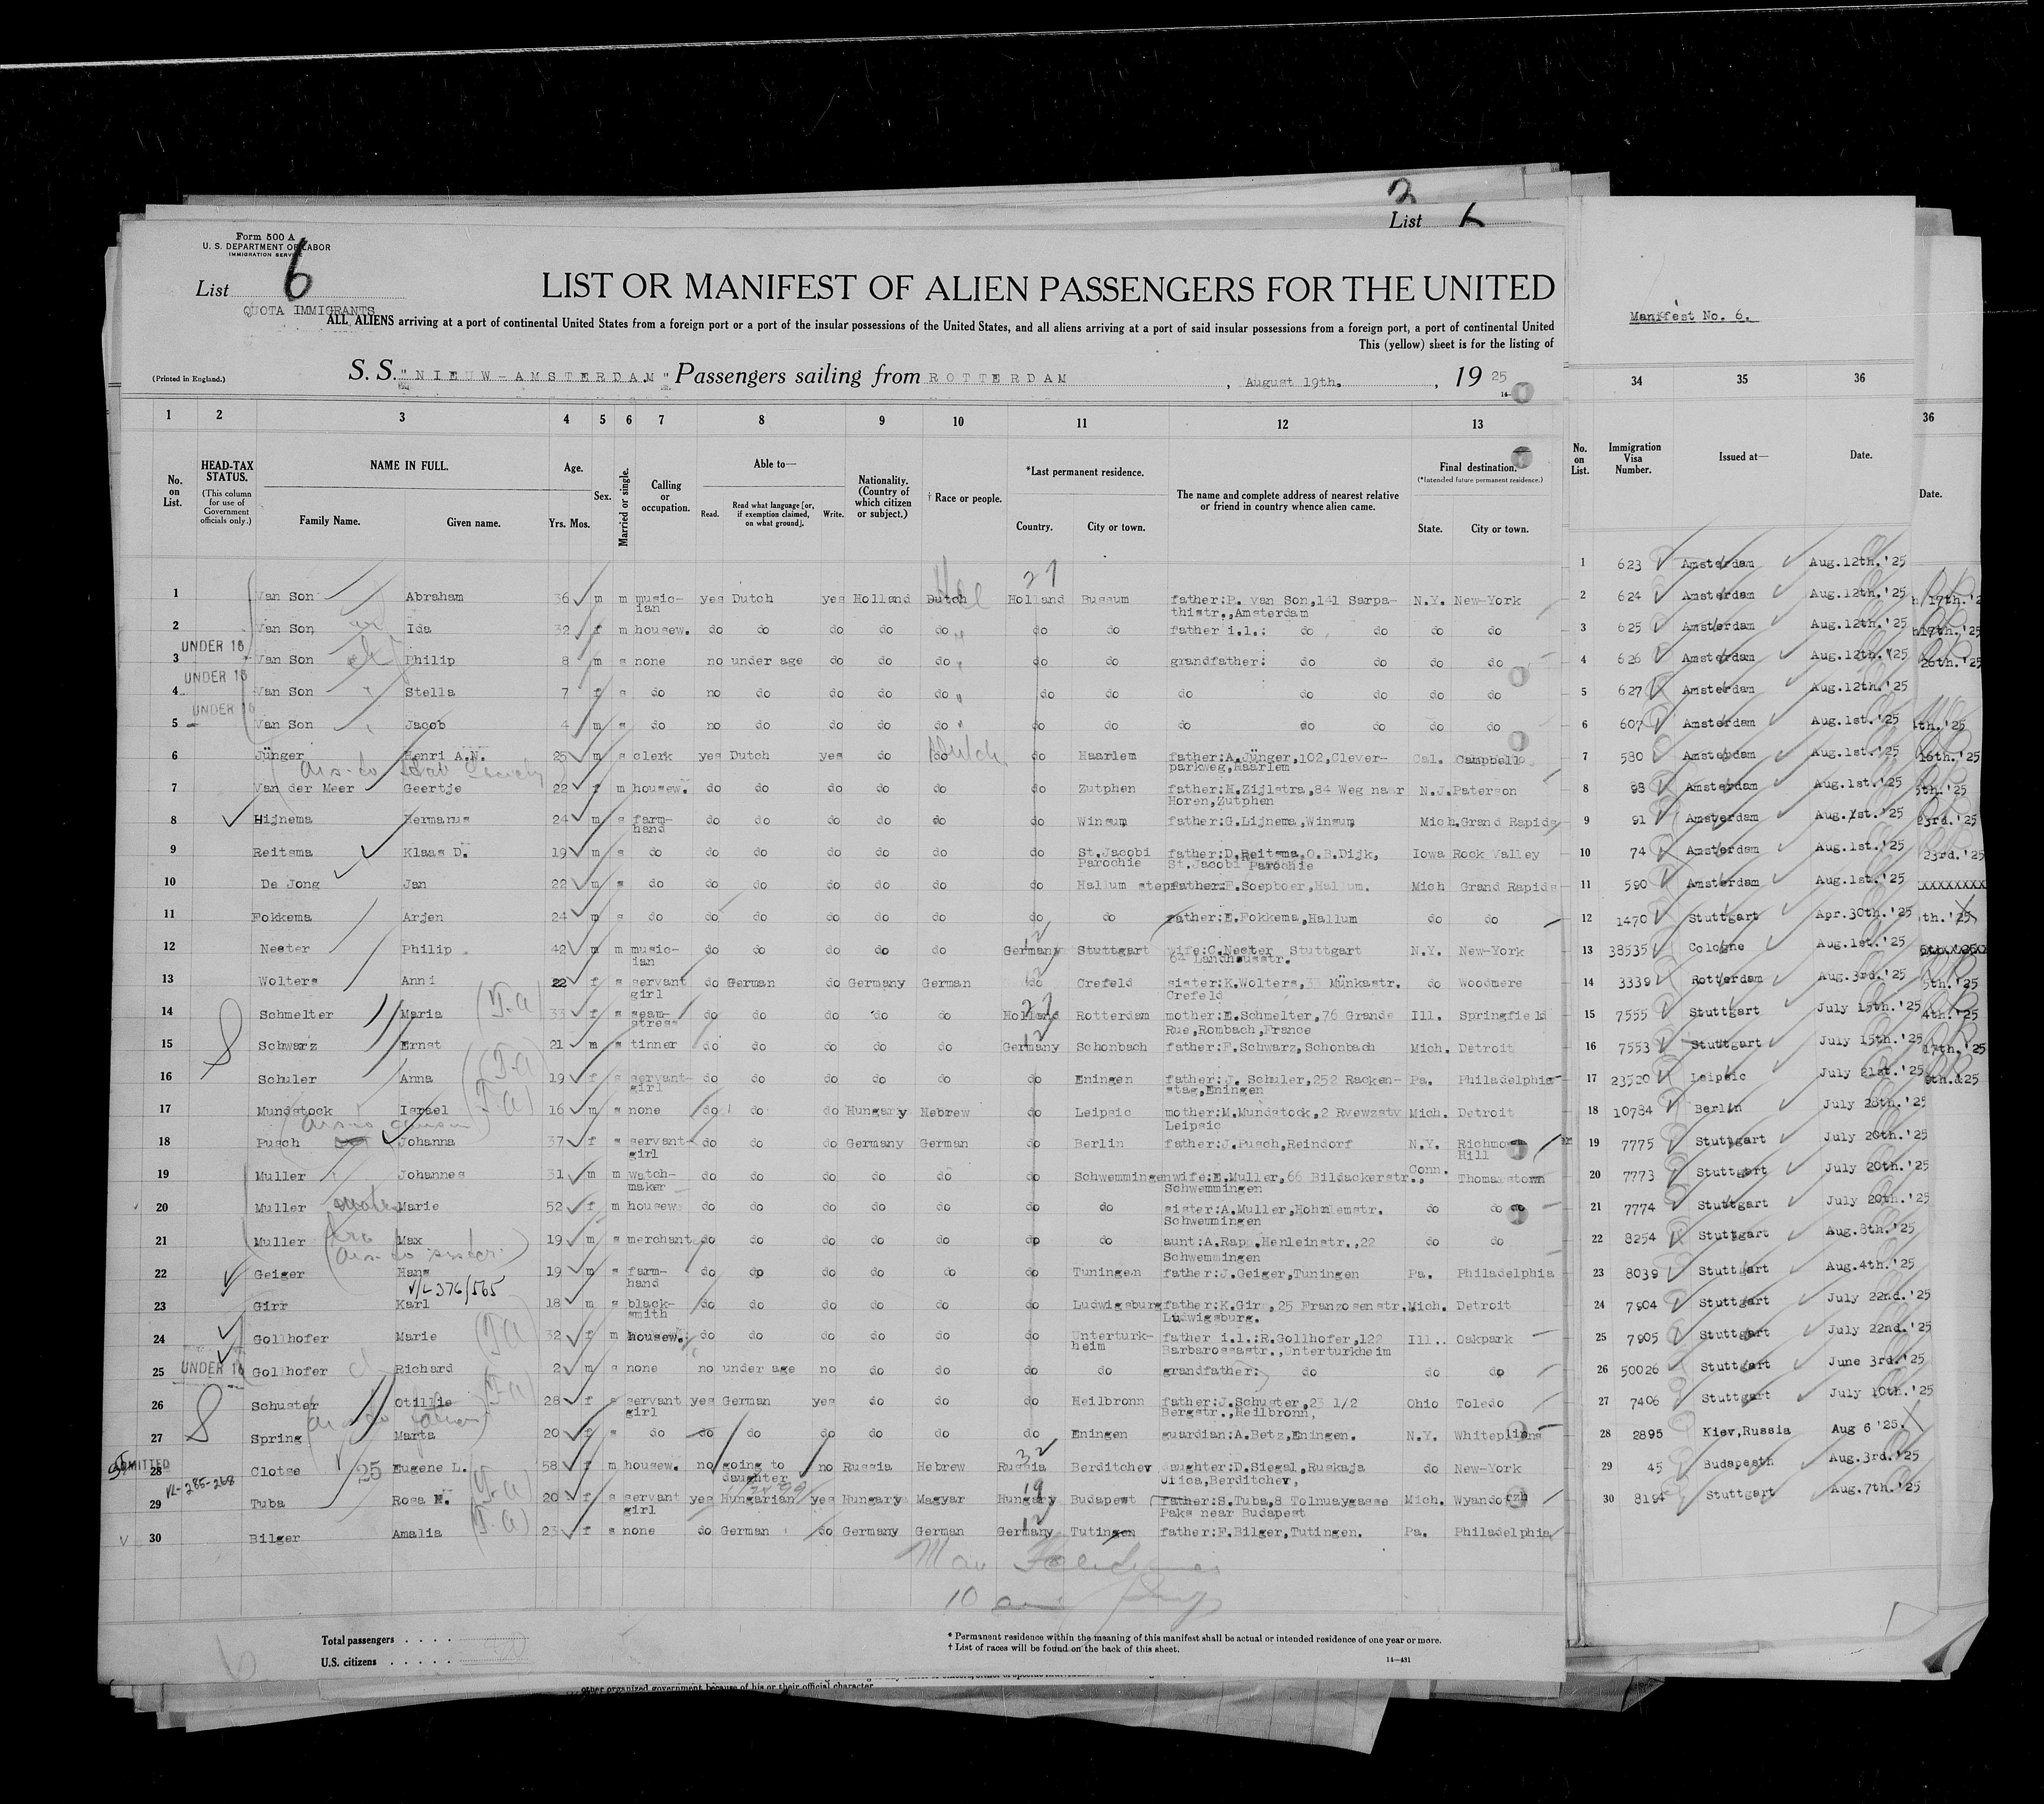 2
List 6
Form 500 A
U. S. DEPARTMENT OF LABOR
IMMIGRATION SERVICE
List 6
QUOTA IMMIGRANTS
LIST OR MANIFEST OF ALIEN PASSENGERS FOR THE UNITED
ALL ALIENS arriving at a port of continental United States from a foreign port or a port of the insular possessions of the United States, and all aliens arriving at a port of said insular possessions from a foreign port, a port of continental United
This (yellow) sheet is for the listing of
(Printed in England.)
S. S. "NIEUW-AMSTERDAM" Passengers sailing from ROTTERDAM, August 19th., 1925
1 2 3 4 5 6 7 8 9 10 11 12 13
No. on List.
HEAD-TAX STATUS.
(This column for use of Government officials only.)
NAME IN FULL.
Family Name. Given name.
Age.
Yrs. Mos.
Sex.
Married or single.
Calling or occupation.
Able to—
Read. Read what language [or, if exemption claimed, on what ground]. Write.
Nationality. (Country of which citizen or subject.)
† Race or people.
*Last permanent residence.
Country. City or town.
The name and complete address of nearest relative or friend in country whence alien came.
Final destination.
(*Intended future permanent residence.)
State. City or town.
27
1 Van Son Abraham 36 m m music-ian yes Dutch yes Holland Dutch Holland Bussum father:B. van Son,141 Sarpa-thistr.,Amsterdam N.Y. New-York
2 Van Son Ida 32 f m housew. do do do do do do do father i.l.: do do do do
UNDER 16
3 Van Son Philip 8 m s none no under age do do do do do grandfather: do do do do
UNDER 16
4 Van Son Stella 7 f s do no do do do do do do do do do do do
UNDER 16
5 Van Son Jacob 4 m s do no do do do do do do do do do do do
6 Jünger Henri A.N. 25 m s clerk yes Dutch yes do do Dutch do Haarlem father:A.Jünger,102,Clever-parkweg,Haarlem Cal. Campbell
7 Van der Meer Geertje 22 f m housew. do do do do do do Zutphen father:H.Zijlstra,84 Weg naar Horen,Zutphen N.J. Paterson
8 Hijnema Hermanus 24 m s farm-hand do do do do do do Winsum father:G.Lijnema,Winsum Mich. Grand Rapids
9 Reitsma Klaas D. 19 m s do do do do do do do St.Jacobi Parochie father:D.Reitsma,O.B.Dijk, St.Jacobi Parochie Iowa Rock Valley
10 De Jong Jan 22 m s do do do do do do do Hallum stepfather:E.Soepboer,Hallum. Mich Grand Rapids
11 Fokkema Arjen 24 m s do do do do do do do do father:E.Fokkema,Hallum do do
12 Neeter Philip 42 m m music-ian do do do do do Germany 12 Stuttgart wife:C.Neeter Stuttgart 64 Landhausstr. N.Y. New-York
13 Wolters Anni 22 f s servant girl do German do Germany German do Crefeld sister:K.Wolters,33 Münkastr. Crefeld do Woodmere
14 Schmelter Maria (T.A) 33 f s seam-stress do do do do do Holland 27 Rotterdam mother:E.Schmelter,76 Grande Rue,Rombach,France Ill. Springfield
15 Schwarz Ernst 21 m s tinner do do do do do Germany 12 Schonbach father:F.Schwarz,Schonbach Mich. Detroit
16 Schuler Anna (T.A) 19 f s servant-girl do do do do do do Eningen father:J. Schuler,252 Racken-stag,Eningen Pa. Philadelphia
17 Mundstock Israel (T.A) 16 m s none do do do Hungary Hebrew do Leipsic mother:M.Mundstock,2 Rvewzstv Leipsic Mich. Detroit
18 Pusch Johanna 37 f s servant-girl do do do Germany German do Berlin father:J.Pusch,Reindorf N.Y. Richmond Hill
19 Muller Johannes 31 m m watch-maker do do do do do do Schwemmingen wife:E.Muller,66 Bildackerstr., Schwemmingen Conn. Thomastown
20 Muller Marie 52 f m housew do do do do do do do sister:A.Muller,Hohnlemstr. Schwemmingen do do
21 Muller bro Max 19 m s merchant do do do do do do do aunt:A.Rapp,Henleinstr.,22 Schwemmingen do do
22 Geiger Hans 19 m s farm-hand do do do do do do Tuningen father:J.Geiger,Tuningen Pa. Philadelphia
V/L 376/565
23 Girr Karl 18 m s black-smith do do do do do do Ludwigsburg father:K.Girr,25 Franzosenstr. Ludwigsburg. Mich. Detroit
24 Gollhofer Marie (TA) 32 f m housew. do do do do do do Unterturk-heim father i.l.:R.Gollhofer,122 Barbarossastr.,Unterturkheim Ill.. Oakpark
UNDER 16
25 Gollhofer Richard 2 m s none no under age no do do do do grandfather: do do do
26 Schuster Otillie (T.A) 28 f s servant girl yes German yes do do do Heilbronn father:J.Schuster,23 1/2 Bergstr.,Heilbronn, Ohio Toledo
27 Spring Marta 20 f s do do do do do do do Eningen guardian:A.Betz,Eningen. N.Y. Whiteplains
ADMITTED
28 Clotse 25 Eugene L. 58 f m housew. no going to daughter no Russia Hebrew Russia 32 Berditchev daughter:D.Siegal,Ruskaja Ulica,Berditchev, do New-York
VL-285-268
29 Tuba Rosa M. (T.A) 20 f s servant girl yes Hungarian yes Hungary Magyar Hungary 19 Budapest father:S.Tuba,8 Tolnuaygasse Paks near Budapest Mich. Wyandotzh
30 Bilger Amalia (T.A) 23 f s none do German do Germany German Germany 12 Tutingen father:F.Bilger,Tutingen. Pa. Philadelphia
10
Total passengers . . . .
U.S. citizens . . . . .
* Permanent residence within the meaning of this manifest shall be actual or intended residence of one year or more.
† List of races will be found on the back of this sheet.
14—431
other organized government because of his or their official character
Manifest No. 6.
34 35 36
No. on List. Immigration Visa Number. Issued at— Date.
1 623 Amsterdam Aug.12th.'25
2 624 Amsterdam Aug.12th.'25
3 625 Amsterdam Aug.12th.'25
4 626 Amsterdam Aug.12th.'25
5 627 Amsterdam Aug.12th.'25
6 607 Amsterdam Aug.1st.'25
7 580 Amsterdam Aug.1st.'25
8 98 Amsterdam Aug.1st.'25
9 91 Amsterdam Aug.1st.'25
10 74 Amsterdam Aug.1st.'25
11 590 Amsterdam Aug.1st.'25
12 1470 Stuttgart Apr.30th.'25
13 38535 Cologne Aug.1st.'25
14 3339 Rotterdam Aug.3rd.'25
15 7555 Stuttgart July 15th.'25
16 7553 Stuttgart July 15th.'25
17 23520 Leipsic July 21st.'25
18 10784 Berlin July 28th.'25
19 7775 Stuttgart July 20th.'25
20 7773 Stuttgart July 20th.'25
21 7774 Stuttgart July 20th.'25
22 8254 Stuttgart Aug.8th.'25
23 8039 Stuttgart Aug.4th.'25
24 7904 Stuttgart July 22nd.'25
25 7905 Stuttgart July 22nd.'25
26 50026 Stuttgart June 3rd.'25
27 7406 Stuttgart July 10th.'25
28 2895 Kiev,Russia Aug 6 '25.
29 45 Budapesth Aug.3rd.'25
30 8194 Stuttgart Aug.7th.'25
36
Date.
17th.'2
17th.'25
26th.'25
th.'25
16th.'25
5th.'25
23rd.'25
23rd.'25
XXXXXXXX
th.'25
5th.'25
4th.'25
17th.'25
9th.&25